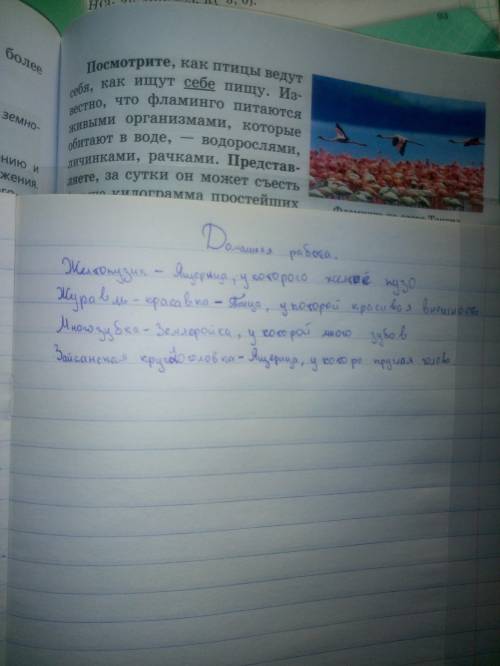 93
более
земно-
ению и
жения.
Посмотрите, как птицы ведут
себя, как ищут себе пищу. Из-
вестно, что фламинго питаются
живыми организмами, которые
обитают в воде, — водорослями,
личинками, рачками. Представ-
ляете, за сутки он может съесть
килограмма простейших
Фламинго на озере
Домашняя работа.
Желтопузик - Ящерица, у которого желтое пузо
Журавль-красавка - Птица, у которой красивая внешность
Многозубка - Землеройка, у которой много зубов
Зайсанская круглоголовка - Ящерица, у которо круглая